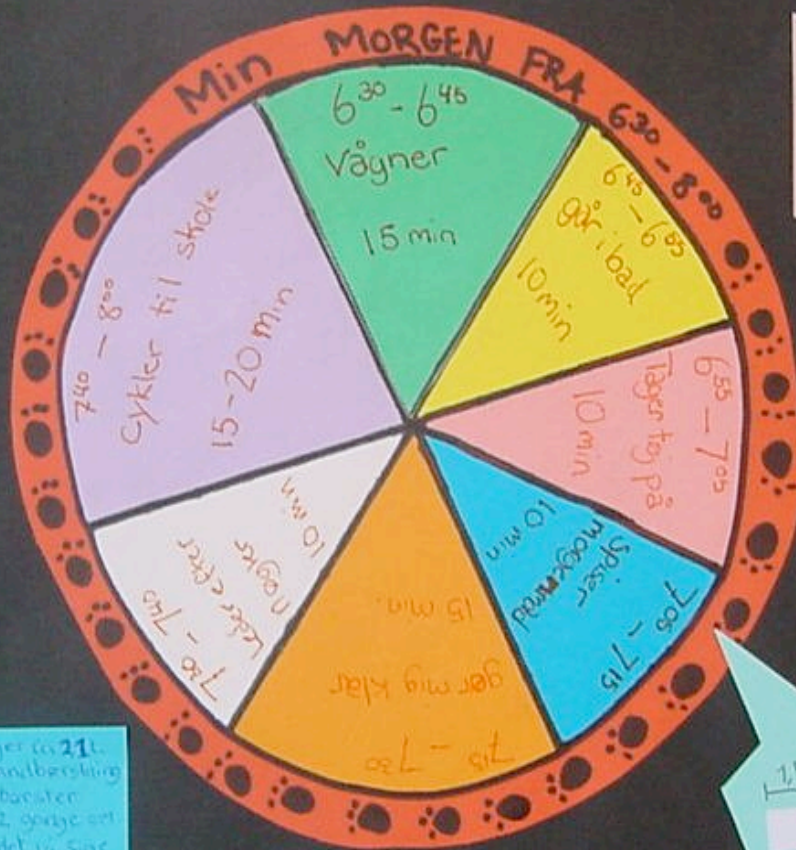 Min MORGEN FRA 6³⁰ - 8⁰⁰
6³⁰ - 6⁴⁵
Vågner
15 min
6⁴⁵ - 6⁵⁵
går i bad
10 min
6⁵⁵ - 7⁰⁵
Tager tøj på
10 min
7⁰⁵ - 7¹⁵
spiser
morgenmad
10 min
7¹⁵ - 7³⁰
gør mig klar
15 min.
7³⁰ - 7⁴⁰
Leder efter
nøgler
10 min
7⁴⁰ - 8⁰⁰
Cykler til skole
15-20 min
21
2 gange